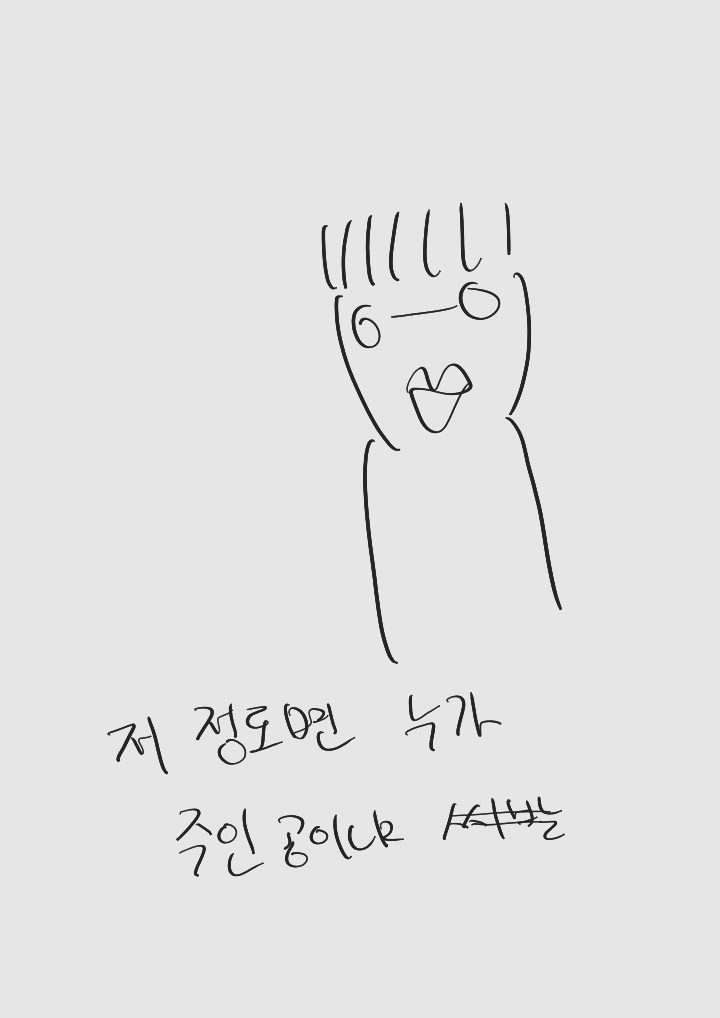 저 정도면 누가
주인공이냐 씨발